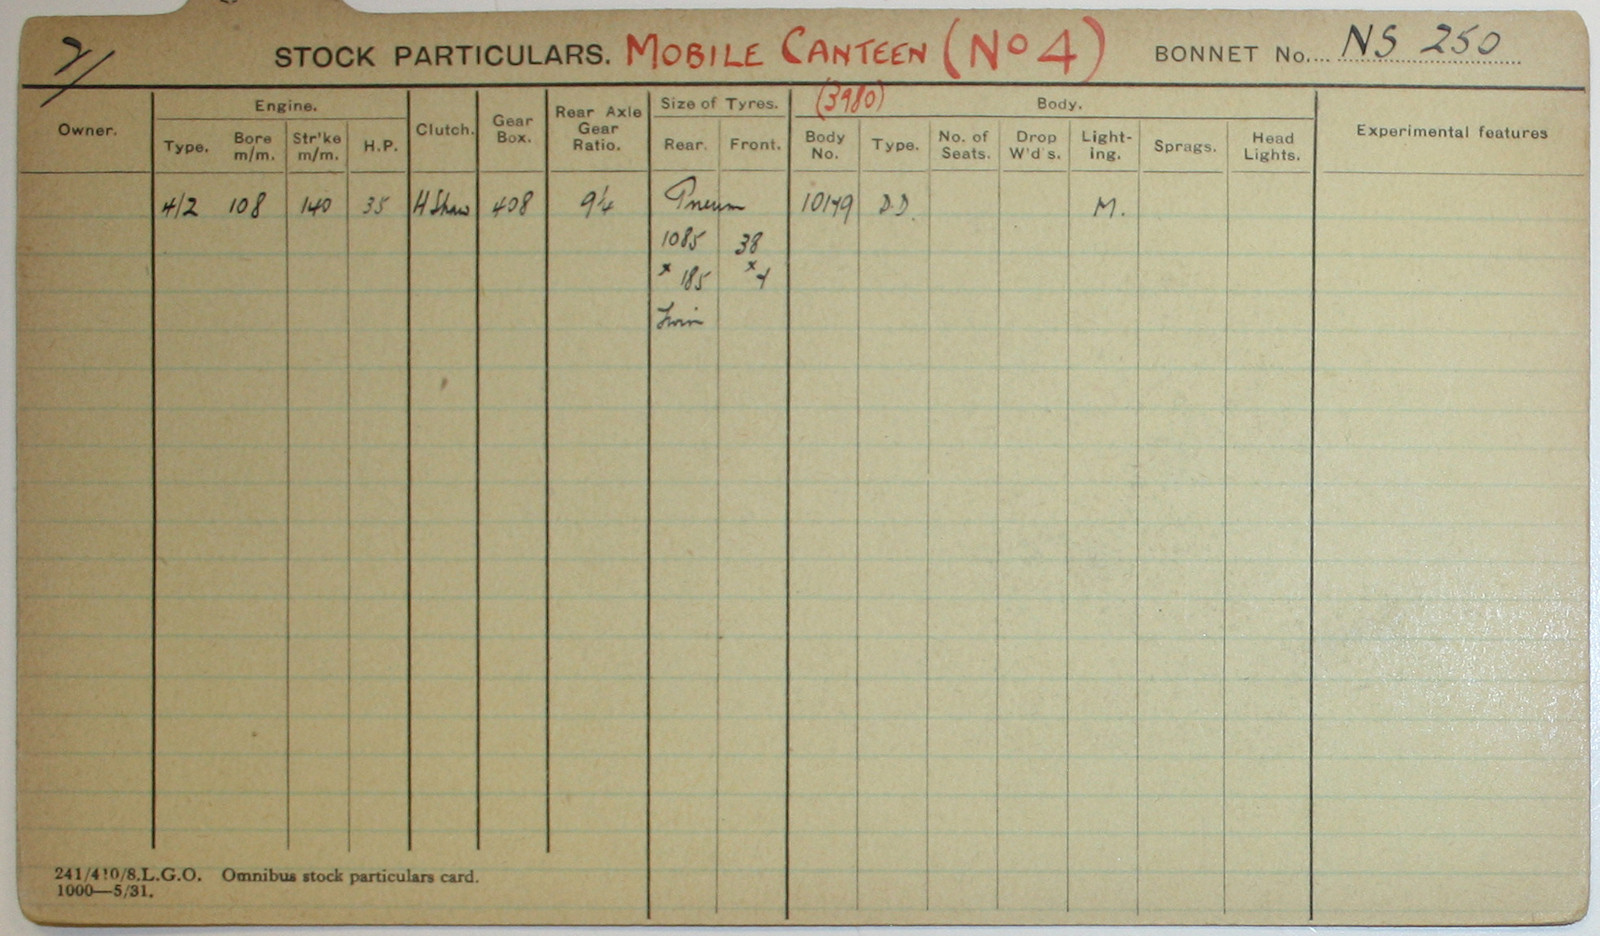 2/
STOCK PARTICULARS. MOBILE CANTEEN (No 4) BONNET No.... NS 250
Owner. Engine. Clutch. Gear Box. Rear Axle Gear Ratio. Size of Tyres. (3980) Body. Experimental features
Type. Bore m/m. Str'ke m/m. H.P. Rear. Front. Body No. Type. No. of Seats. Drop W'd's. Light-ing. Sprags. Head Lights.
4/2 108 140 35 H Shaw 408 9¼ Pneum 10179 D.D. M.
1085 38
x 185 x 4
Twin
241/410/8.L.G.O. Omnibus stock particulars card.
1000—5/31.